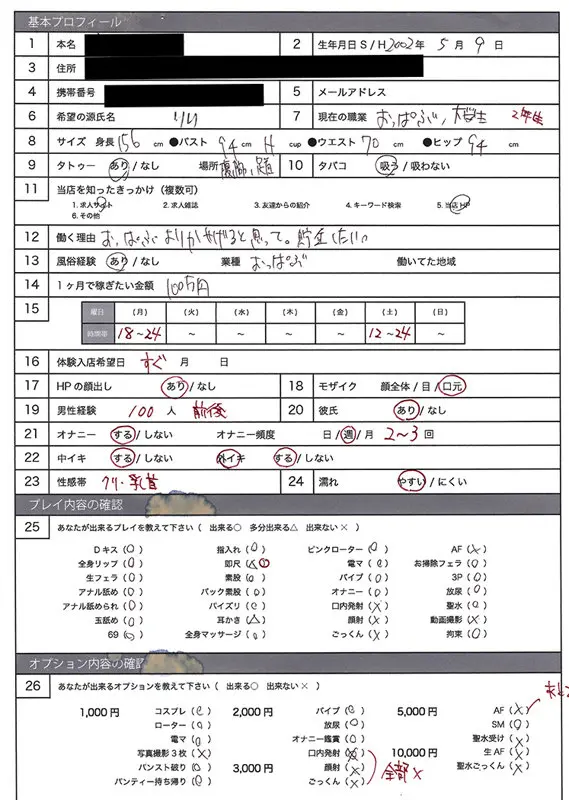 基本プロフィール
1 本名 2 生年月日 S / H 2002年 5月 9日
3 住所
4 携帯番号 5 メールアドレス
6 希望の源氏名 リリ 7 現在の職業 おっぱぶ、大学生 2年生
8 サイズ 身長 156 cm ●バスト 94 cm H cup ●ウエスト 70 cm ●ヒップ 94 cm
9 タトゥー あり / なし 場所 10 タバコ 吸う / 吸わない
11 当店を知ったきっかけ（複数可）
1. 求人サイト 2. 求人雑誌 3. 友達からの紹介 4. キーワード検索 5. 当店HP
6. その他
12 働く理由 おっぱぶよりかせげると思って。貯金したい
13 風俗経験 あり / なし 業種 おっぱぶ 働いてた地域
14 1ヶ月で稼ぎたい金額 100万円
15 曜日 （月） （火） （水） （木） （金） （土） （日）
時間帯 18~24 ~ ~ ~ ~ 12~24 ~
16 体験入店希望日 すぐ 月 日
17 HPの顔出し あり / なし 18 モザイク 顔全体 / 目 / 口元
19 男性経験 100 人 前後 20 彼氏 あり / なし
21 オナニー する / しない オナニー頻度 日 / 週 / 月 2~3 回
22 中イキ する / しない 外イキ する / しない
23 性感帯 クリ・乳首 24 濡れ やすい / にくい
プレイ内容の確認
25 あなたが出来るプレイを教えて下さい（ 出来る○ 多分出来る△ 出来ない× ）
Dキス（○） 指入れ（○） ピンクローター（○） AF（×）
全身リップ（○） 即尺（△○） 電マ（○） お掃除フェラ（○）
生フェラ（○） 素股（○） バイブ（○） 3P（○）
アナル舐め（○） バック素股（○） オナニー（○） 放尿（○）
アナル舐められ（○） パイズリ（○） 口内発射（×） 聖水（○）
玉舐め（○） 耳かき（△） 顔射（×） 動画撮影（×）
69（○） 全身マッサージ（○） ごっくん（×） 拘束（○）
オプション内容の確認
26 あなたが出来るオプションを教えて下さい（ 出来る○ 出来ない× ）
1,000円 コスプレ（○） 2,000円 バイブ（○） 5,000円 AF（×）
ローター（○） 放尿（○） SM（○）
電マ（○） オナニー鑑賞（○） 聖水受け（×）
写真撮影3枚（×） 口内発射（×） 10,000円 生AF（×）
パンスト破り（○） 3,000円 顔射（×） 全部× 聖水ごっくん（×）
パンティー持ち帰り（○） ごっくん（×）